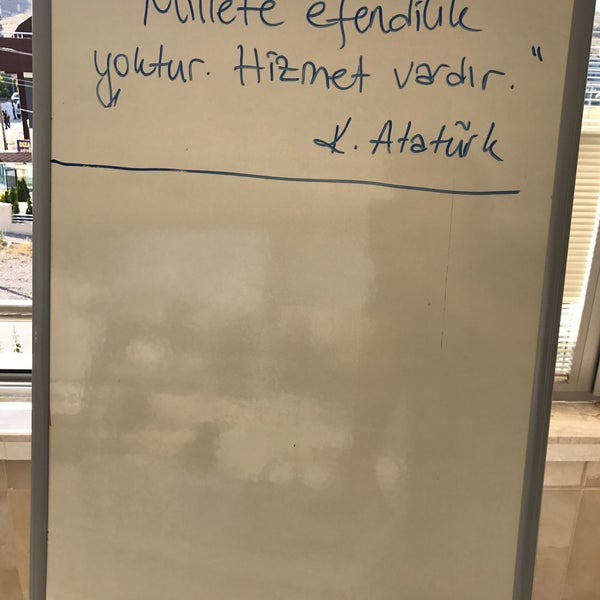 Millete efendilik
yoktur. Hizmet vardır."
K. Atatürk